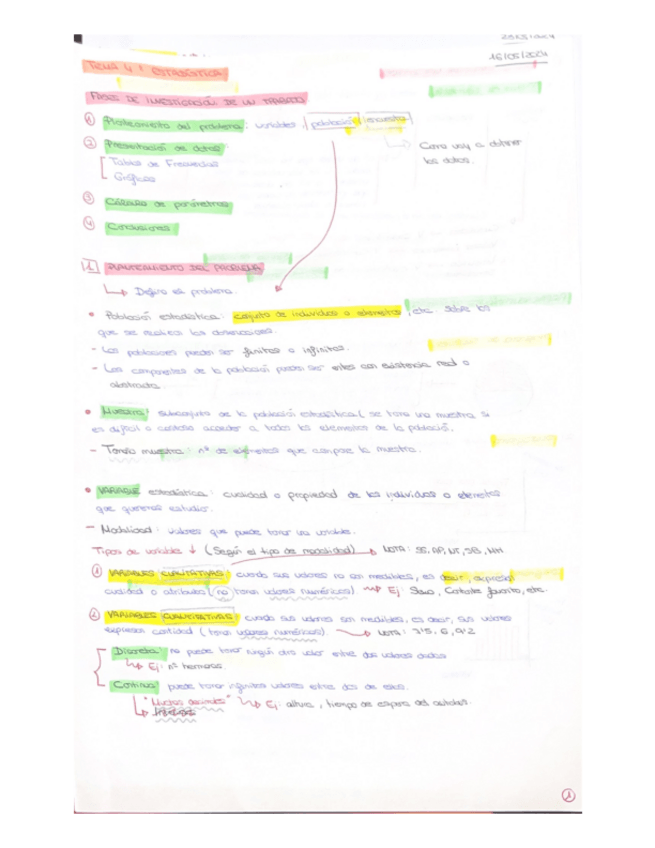 16/05/2024
TEMA 4: ESTADÍSTICA
FASES DE INVESTIGACIÓN DE UN TRABAJO
① Planteamiento del problema: variables, población, encuesta
② Presentación de datos: Como voy a obtener
Tablas de Frecuencias los datos.
Gráficas
③ Cálculo de parámetros
④ Conclusiones
1. PLANTEAMIENTO DEL PROBLEMA
Definir el problema.
• Población estadística: conjunto de individuos o elementos, etc. sobre los
que se realizan las observaciones.
- Las poblaciones pueden ser finitas o infinitas.
- Los componentes de la población pueden ser entes con existencia real o
abstracta.
• Muestra: subconjunto de la población estadística (se toma una muestra si
es difícil o costoso acceder a todos los elementos de la población.
- Tamaño muestra: nº de elementos que compone la muestra.
• VARIABLE estadística: cualidad o propiedad de los individuos o elementos
que queremos estudiar.
- Modalidad: valores que puede tomar una variable.
Tipos de variables ↓ (Según el tipo de modalidad) → NOTA: SS, AP, NT, SB, MH
① VARIABLES CUALITATIVAS: cuando sus valores no son medibles, es decir, expresan
cualidad o atributos (no toman valores numéricos) → Ej: Sexo, Cantante favorito, etc.
② VARIABLES CUANTITATIVAS: cuando sus valores son medibles, es decir, sus valores
expresan cantidad (toman valores numéricos). → NOTA: 3'5, 6, 9'2
Discreta: no puede tomar ningún otro valor entre dos valores dados
Ej: nº hermanos.
Continua: puede tomar infinitos valores entre dos de estos.
"Muchos decimales" → Ej: altura, tiempo de espera del autobús.
①